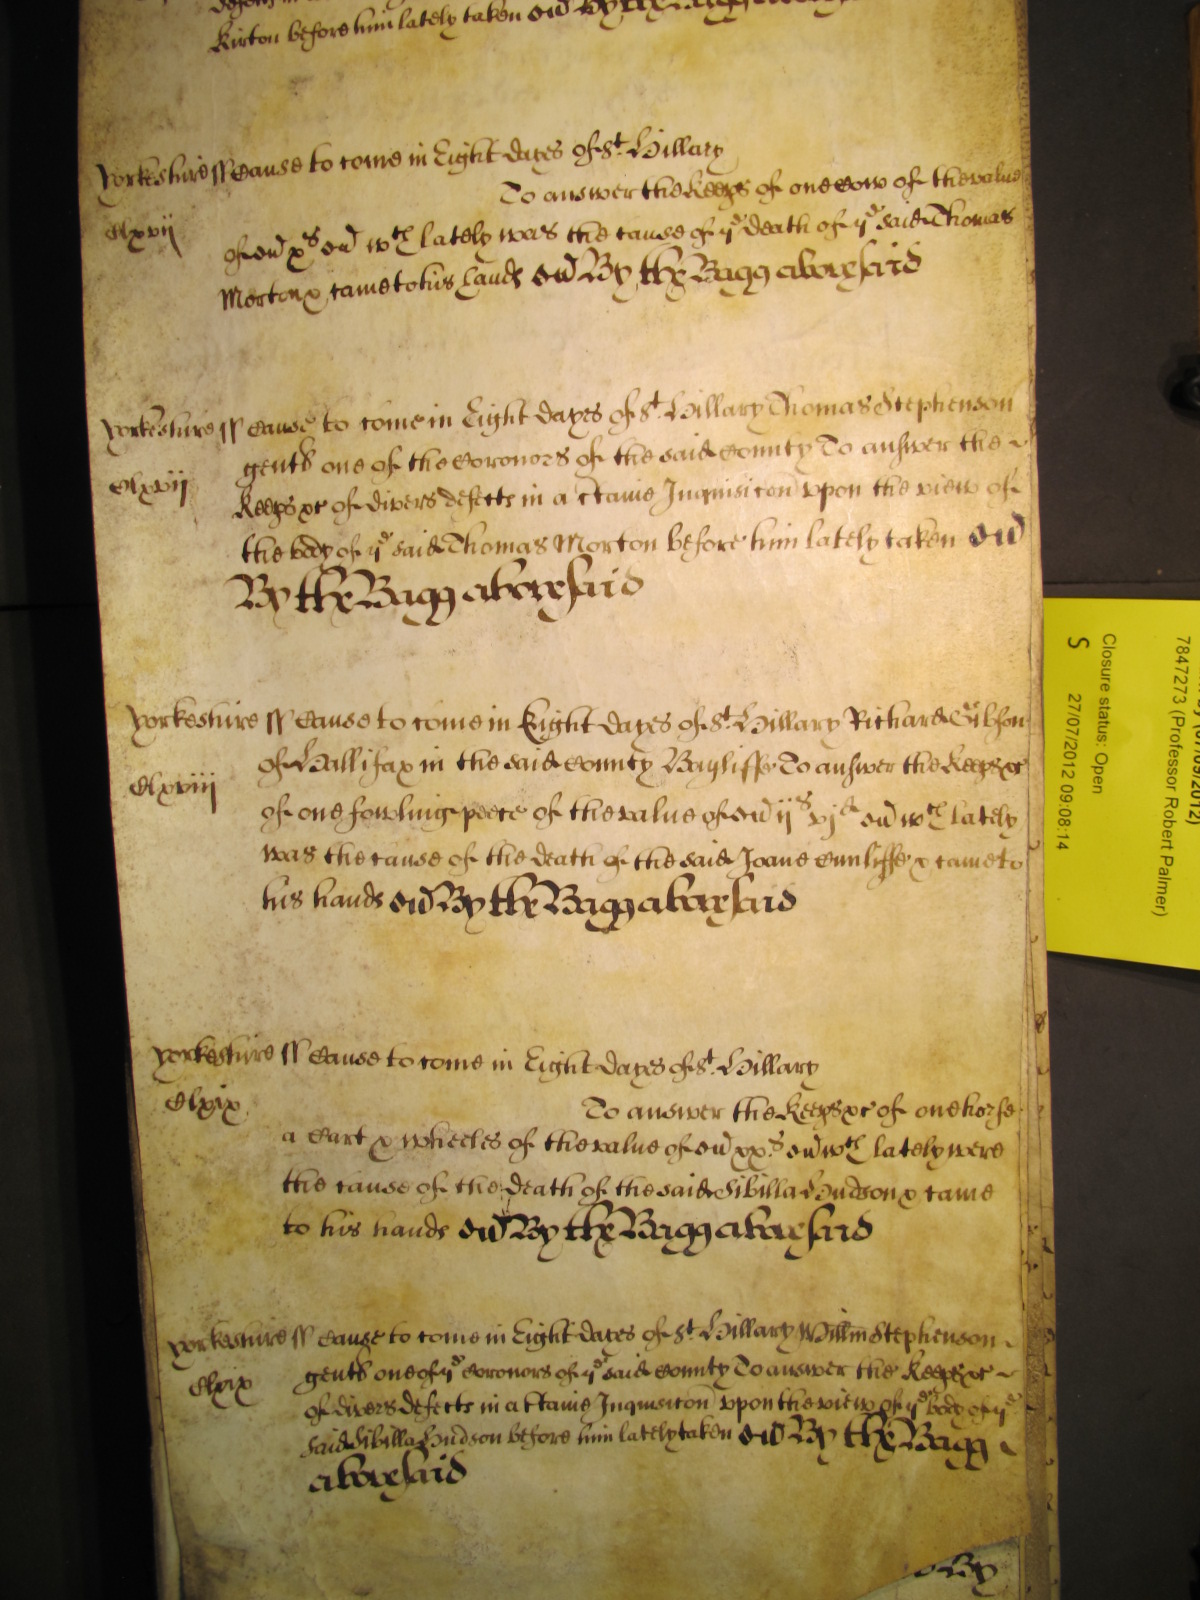 Kirton before him lately taken
Yorkeshire ss Cause to come in Eight dayes of St. Hillary
To answer the Keeps of one cow of the value
Clxvij
of xs wch lately was the cause of ye death of ye said Thomas
Morton & came to his hands By the Bagg aforesaid
Yorkeshire ss Cause to come in Eight dayes of St. Hillary Thomas Stephenson
gent one of the Coronors of the said County To answer the
Clxvij
Keeps &c of divers defects in a ctaine Inquisicon upon the view of
the body of ye said Thomas Morton before him lately taken
By the Bagg aforesaid
Yorkeshire ss Cause to come in Eight dayes of St. Hillary Richard Gibson
of Hallifax in the said County Bayliffe To answer the Keeps &c
Clxviij
of one fowling peece of the value of ijs vjd wch lately
was the cause of the death of the said Joane Cunliffe & came to
his hands By the Bagg aforesaid
Yorkeshire ss Cause to come in Eight dayes of St. Hillary
Clxix
To answer the Keeps &c of one horse
a Cart & wheeles of the value of xxs wch lately were
the cause of the death of the said Sibilla Hudson & came
to his hands By the Bagg aforesaid
Yorkeshire ss Cause to come in Eight dayes of St. Hillary Willm Stephenson
gent one of ye Coronors of ye said County To answer the Keeps &c
Clxix
of divers defects in a ctaine Inquisicon upon the view of ye body of ye
said Sibilla Hudson before him lately taken By the Bagg
aforesaid
By
7847273 (Professor Robert Palmer)
Closure status: Open
S 27/07/2012 09:08:14